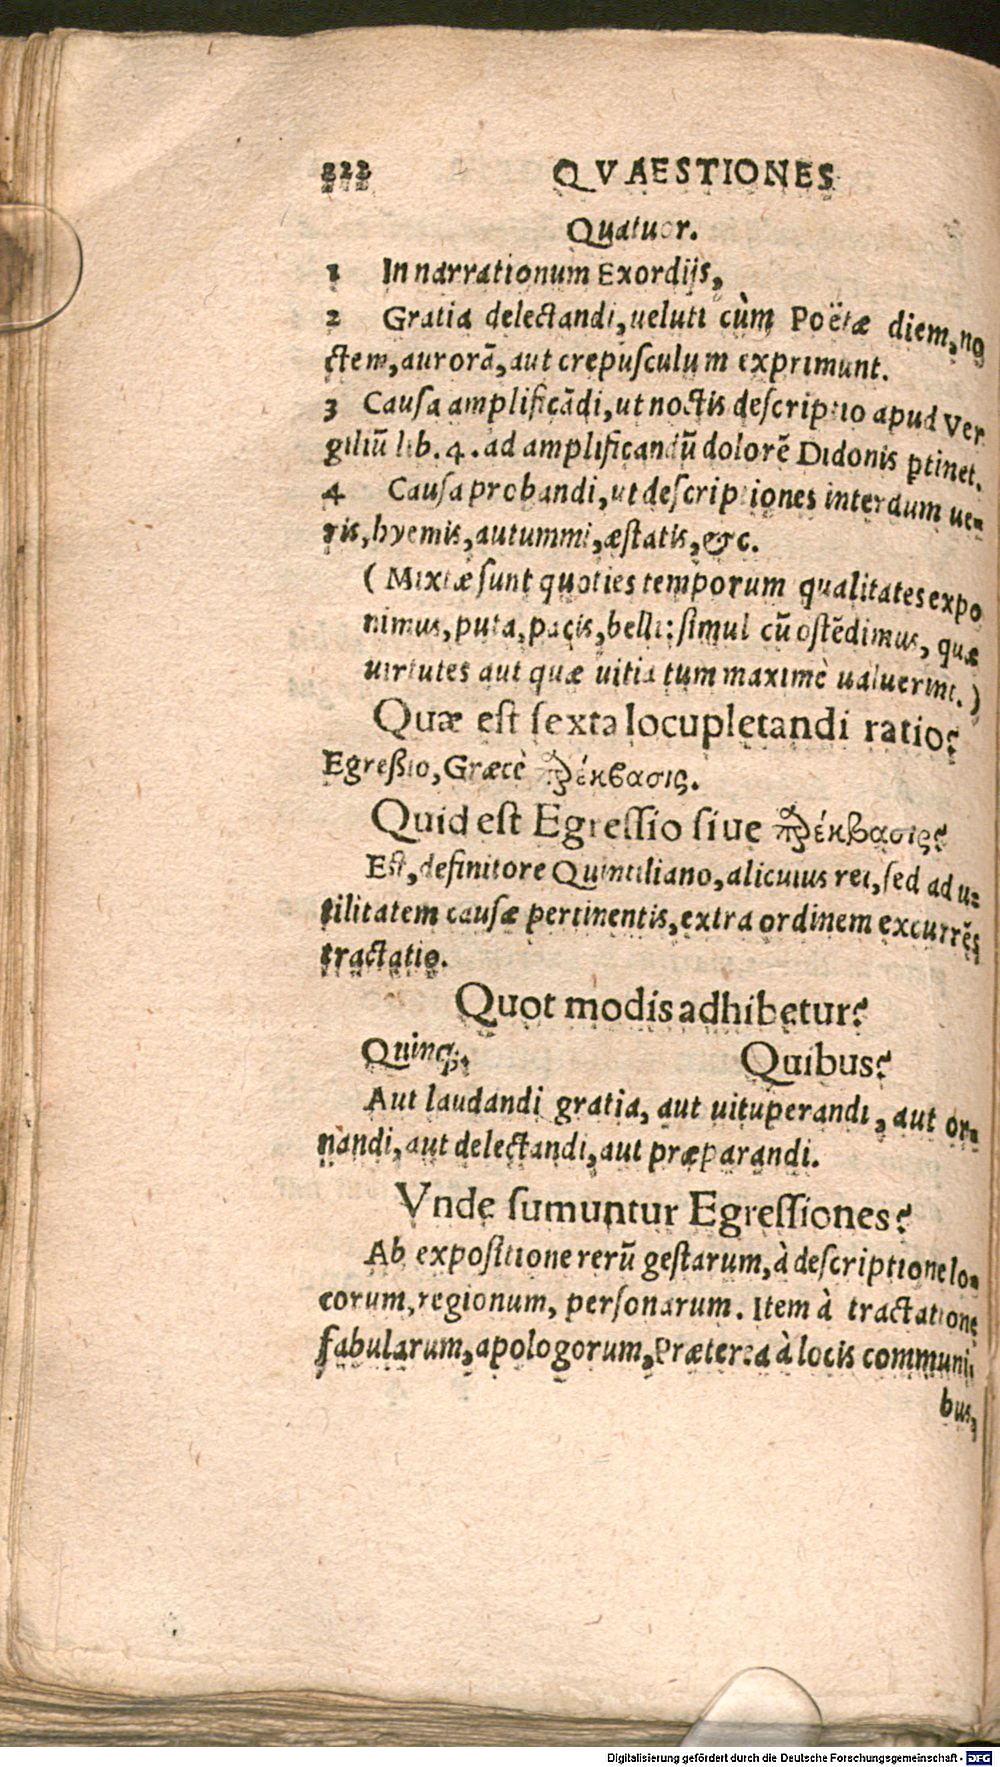 222 QVAESTIONES
Quatuor.
1 In narrationum Exordijs,
2 Gratia delectandi, ueluti cùm Poëtæ diem, no
ctem, aurorā, aut crepusculum exprimunt.
3 Causa amplificādi, ut noctis descriptio apud Ver
giliū lib. 4. ad amplificandū dolorē Didonis ꝑtinet.
4 Causa probandi, ut descriptiones interdum ue-
ris, hyemis, autummi, æstatis, &c.
( Mixtæ sunt quoties temporum qualitates expo
nimus, puta, pacis, belli: simul cū ostēdimus, quæ
uirtutes aut quæ uitia tum maximè ualuerint. )
Quæ est sexta locupletandi ratio?
Egreßio, Græcè παρέκβασις.
Quid est Egressio siue παρέκβασις?
Est, definitore Quintiliano, alicuius rei, sed ad u-
tilitatem causæ pertinentis, extra ordinem excurrēs
tractatio.
Quot modis adhibetur?
Quinq;. Quibus?
Aut laudandi gratia, aut uituperandi, aut or-
nandi, aut delectandi, aut præparandi.
Vnde sumuntur Egressiones?
Ab expositione rerū gestarum, à descriptione lo-
corum, regionum, personarum. Item à tractatione
fabularum, apologorum, Præterea à locis communi
bus,
Digitalisierung gefördert durch die Deutsche Forschungsgemeinschaft - DFG